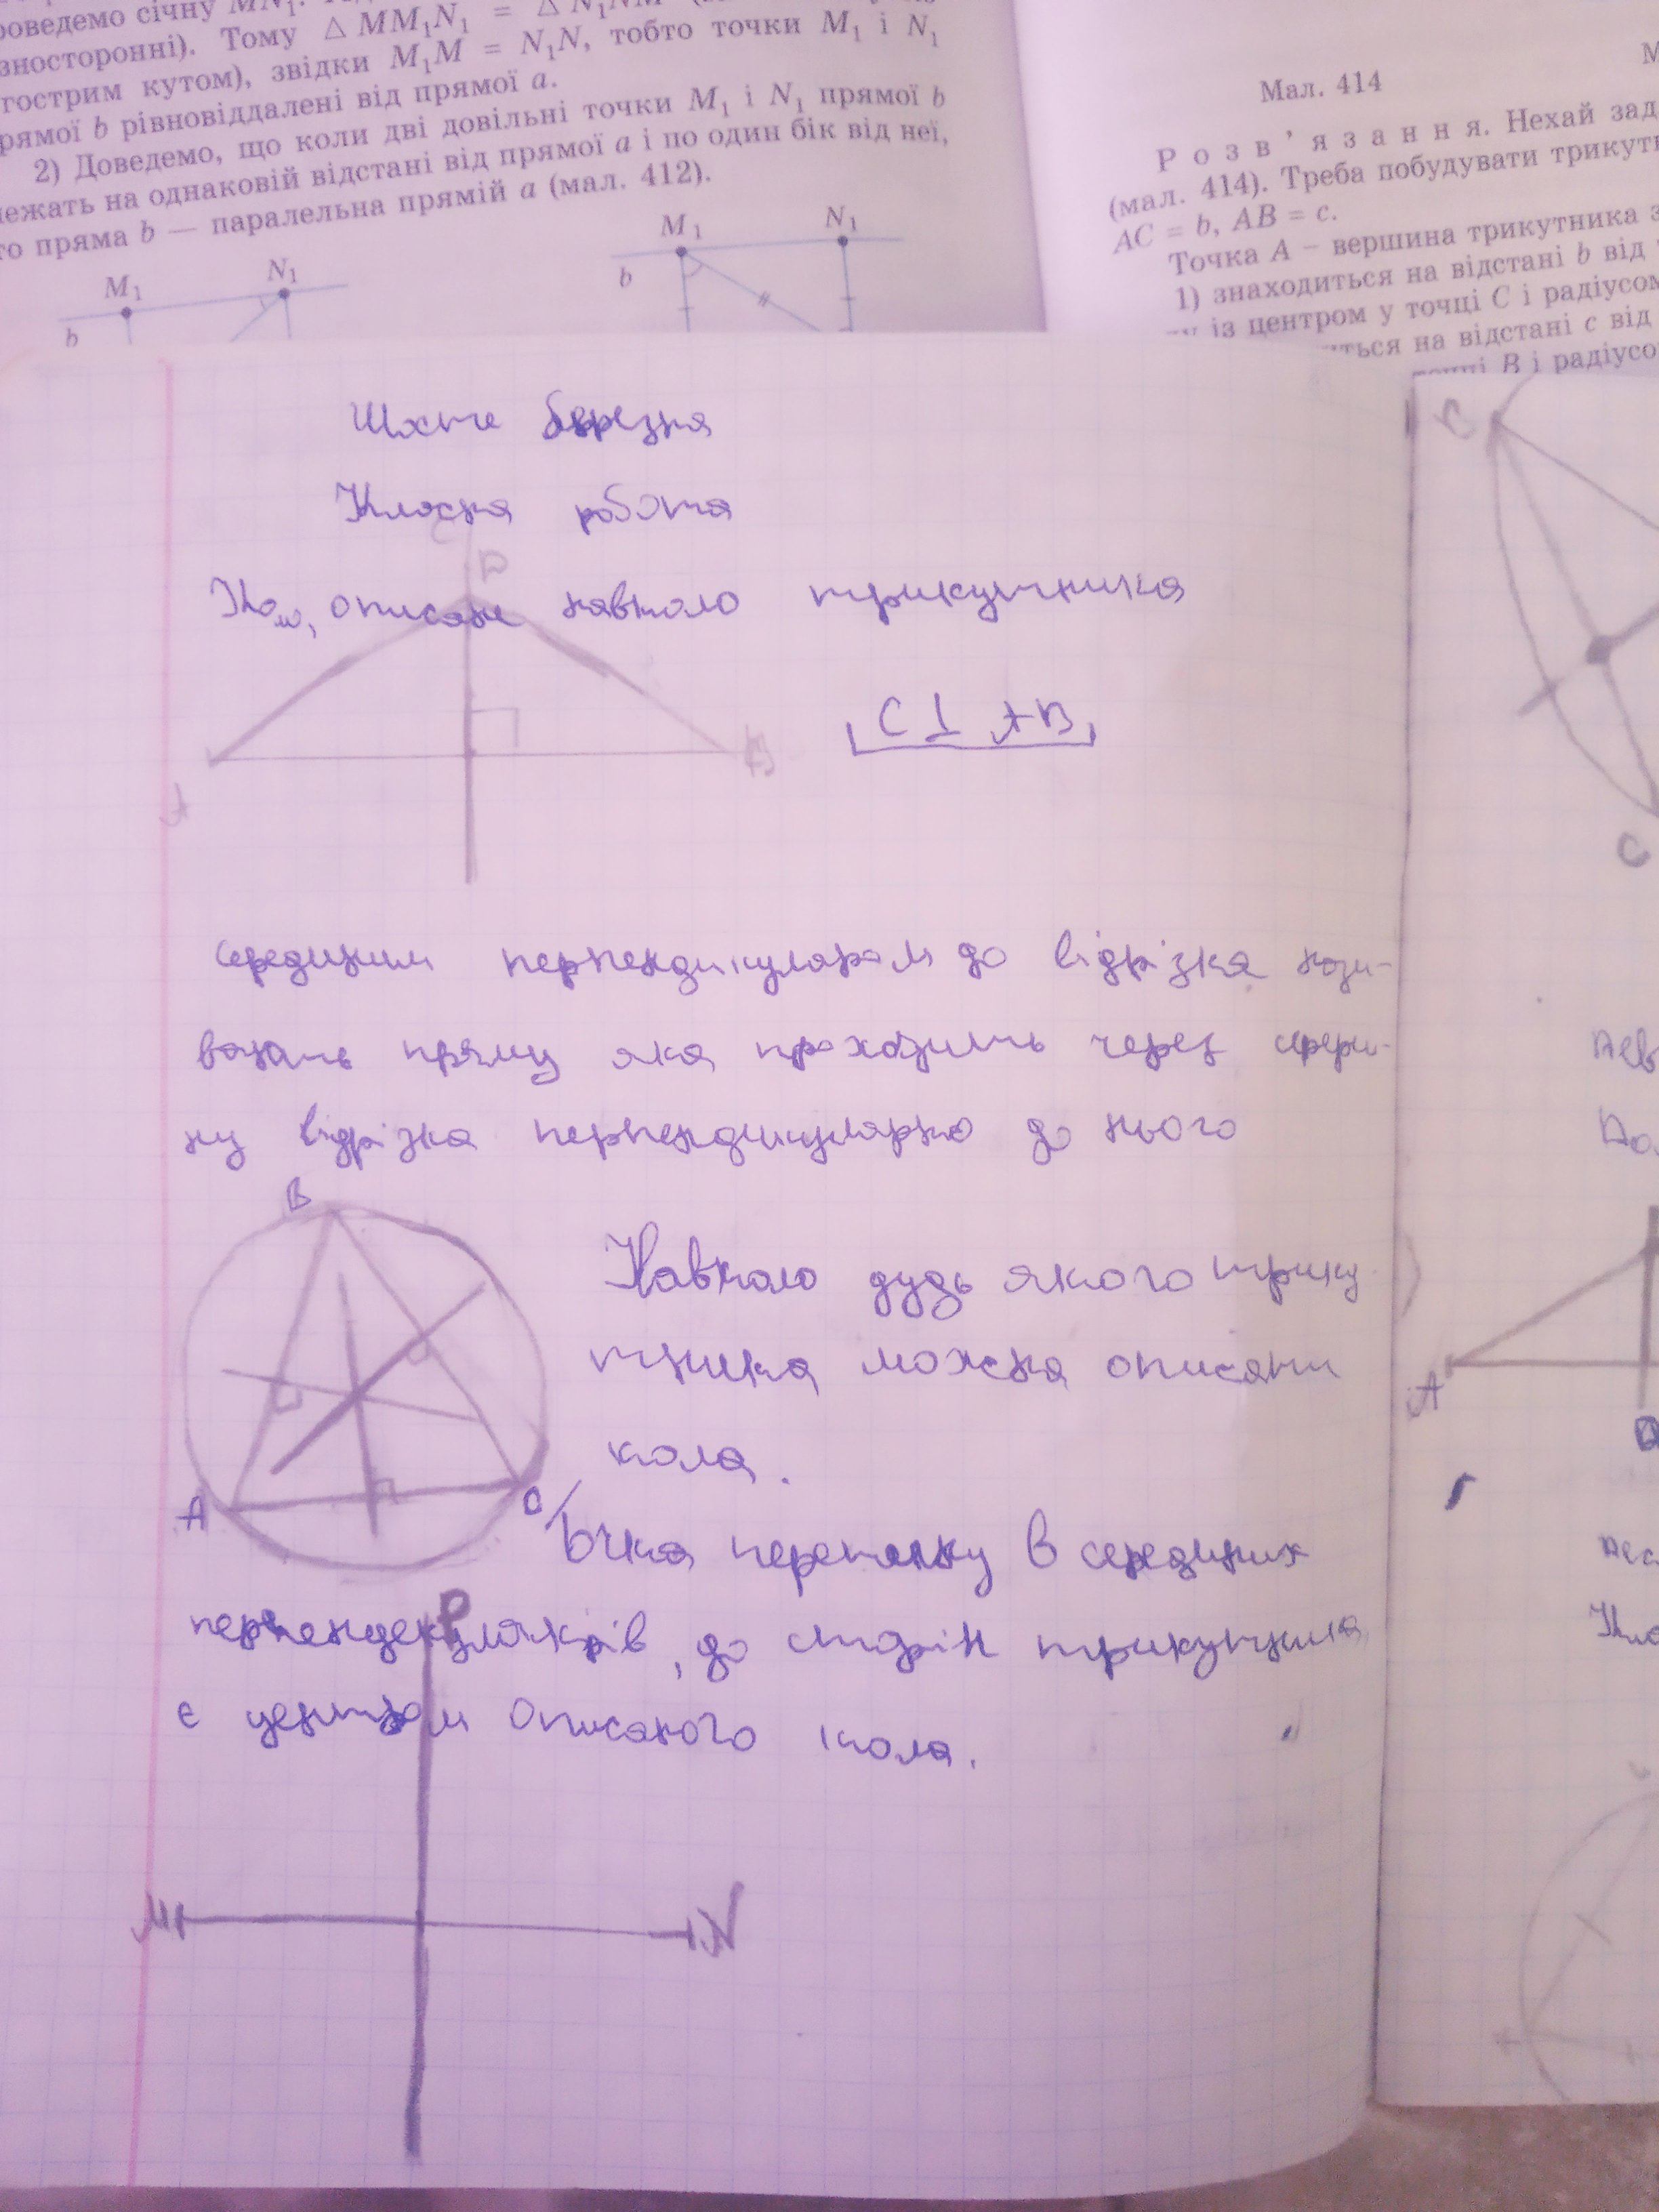 роведемо січну MN₁.
зносторонні). Тому △ MM₁N₁ = △ N₁NM
гострим кутом), звідки M₁M = N₁N, тобто точки M₁ і N₁
рямої b рівновіддалені від прямої a.
2) Доведемо, що коли дві довільні точки M₁ і N₁ прямої b
лежать на однаковій відстані від прямої a і по один бік від неї,
то пряма b — паралельна прямій a (мал. 412).
M₁ N₁
b
M₁ N₁
b
Мал. 414
Розв'язання. Нехай зад
(мал. 414). Треба побудувати трикутн
AC = b, AB = c.
Точка A – вершина трикутника з
1) знаходиться на відстані b від
із центром у точці C і радіусом
ться на відстані c від
B і радіусо
Шосте березня
Класна робота
описане навколо трикутника
P
C ⊥ AB
A B
середнім перпендикуляром до відрізка нази-
вають пряму яка проходить через середи-
ну відрізка перпендикулярно до нього
B
Навколо дудь якого трику
тника можна описати
кола.
A C
Точка перетину в середніх
перпендекулякрів, до сторін трикутника
є центром описаного кола.
P
M N
C
A